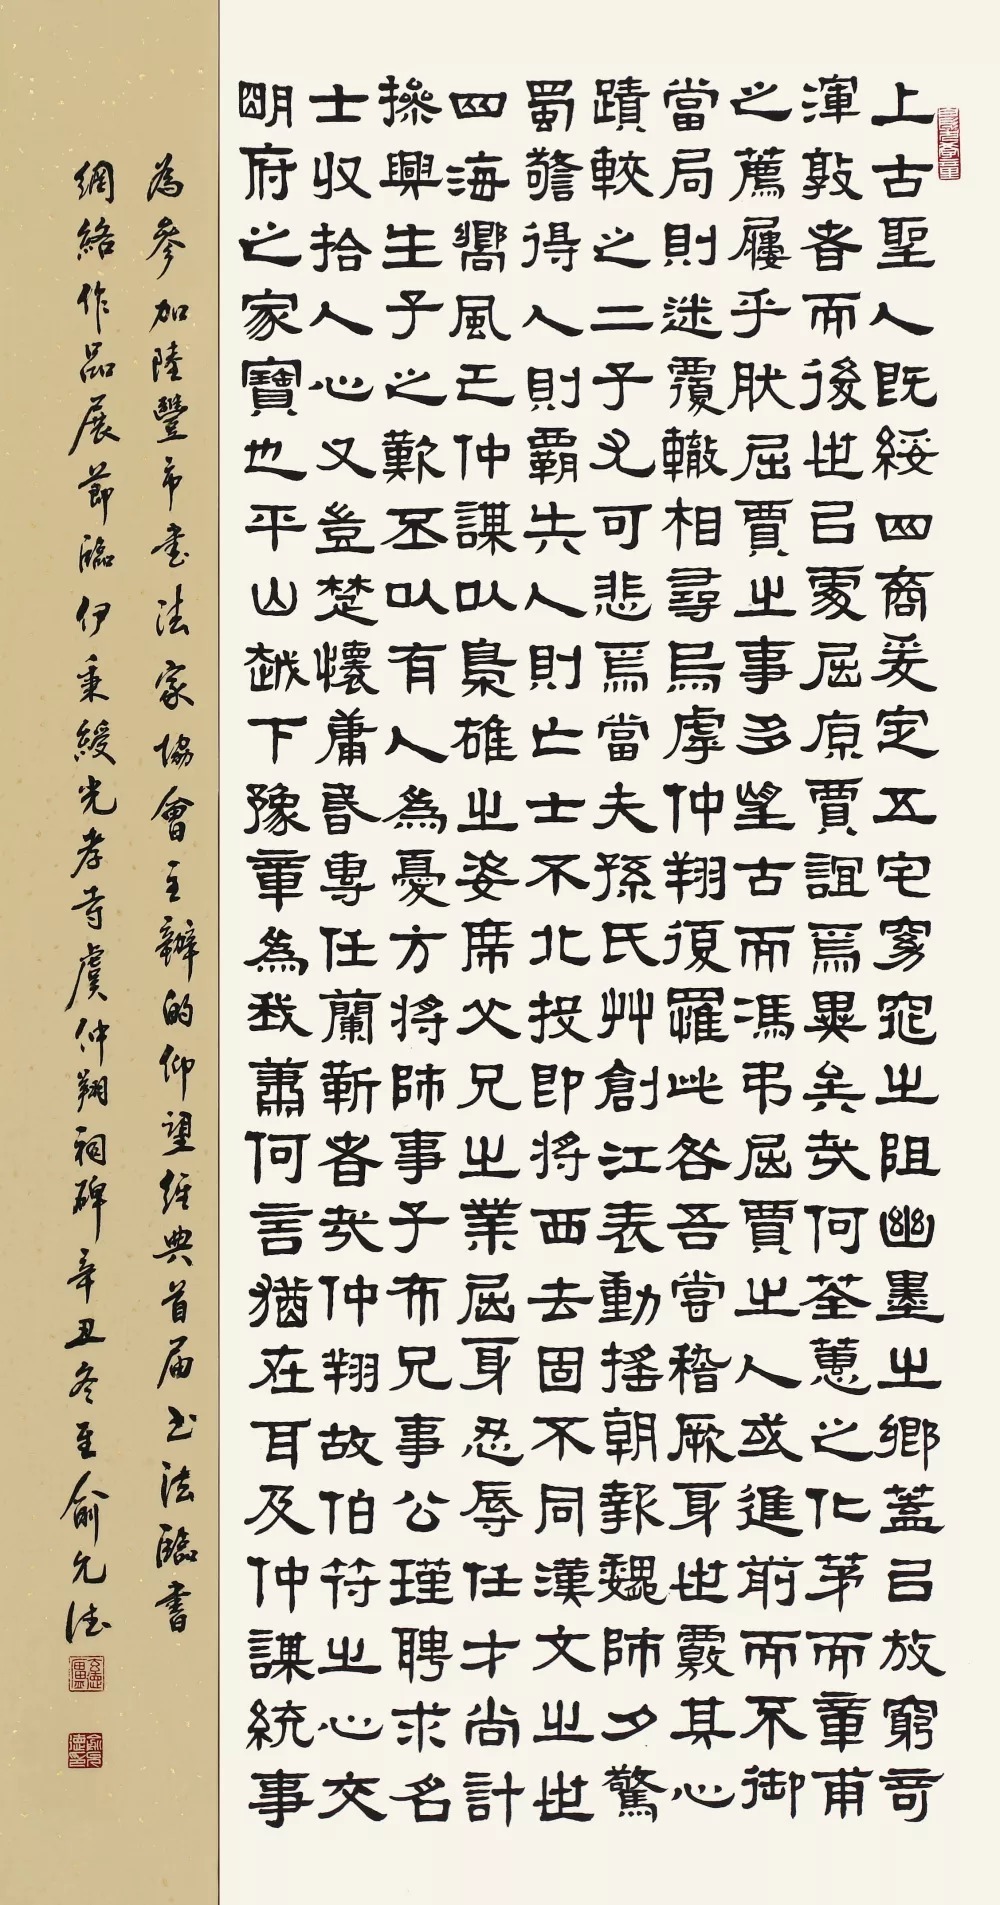 上古聖人既綏四裔爰定五宅窮窕之阻幽墨之鄉蓋㠯放窮奇
渾敦者而後世㠯處屈原賈誼焉異矣哉何荃蕙之化茅而章甫
之薦屨乎肰屈賈之事多望古而馮弔屈賈之人或進前而不御
當局則迷覆轍相尋烏虖仲翔復罹此咎吾嘗稽厥身世覈其心
蹟較之二子尤可悲焉當夫孫氏艸創江表動搖朝報魏師夕驚
蜀警得人則霸失人則亡士不北投即將西去固不同漢文之世
四海嚮風已仲謀以梟雄之姿席父兄之業屈身忍辱任才尚計
操興生子之歎丕以有人為憂方將師事子布兄事公瑾聘求名
士收拾人心又豈楚懷庸昬專任蘭靳者哉仲翔故伯符之心交
朙府之家寶也平山越下豫章為我蕭何言猶在耳及仲謀統事
為參加陸豐市書法家協會主辦的仰望經典首届書法臨書
網絡作品展節臨伊秉綬光孝寺虞仲翔祠碑辛丑冬至俞允德